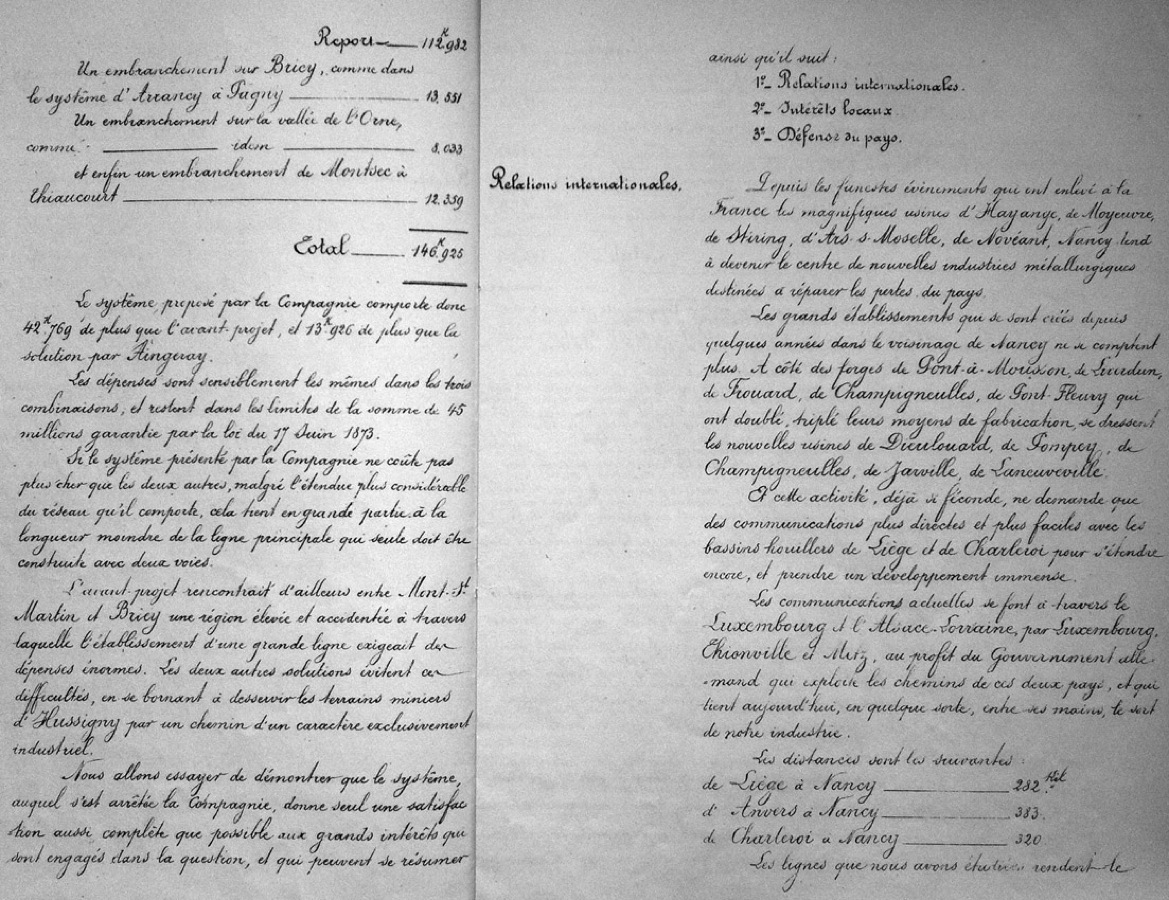 Report — 112.ᴷ982
Un embranchement sur Bricy, comme dans
le système d'Arrancy à Pagny — 13.551
Un embranchement sur la vallée de l'Orne,
comme — idem — 8.033
et enfin un embranchement de Montsec à
Thiaucourt — 12.359
Total — 146.ᴷ925
Le système, proposé par la Compagnie comporte donc
42.ᴷ769 de plus que l'avant-projet, et 13.ᴷ926 de plus que la
solution par Aingeray.
Les dépenses sont sensiblement les mêmes dans les trois
combinaisons, et restent dans les limites de la somme de 45
millions garantie par la loi du 17 Juin 1873.
Si le système présenté par la Compagnie ne coûte pas
plus cher que les deux autres, malgré l'étendue plus considérable
du réseau qu'il comporte, cela tient en grande partie à la
longueur moindre de la ligne principale qui seule doit être
construite avec deux voies.
L'avant-projet rencontrait d'ailleurs entre Mont-Sᵗ
Martin et Bricy une région élevée et accidentée à travers
laquelle l'établissement d'une grande ligne exigeait des
dépenses énormes. Les deux autres solutions évitent ces
difficultés, en se bornant à desservir les terrains miniers
d'Hussigny par un chemin d'un caractère exclusivement
industriel.
Nous allons essayer de démontrer que le système,
auquel s'est arrêtée la Compagnie, donne seul une satisfac
tion aussi complète que possible aux grands intérêts qui
sont engagés dans la question, et qui peuvent se résumer
ainsi qu'il suit :
1º_ Relations internationales.
2º_ Intérêts locaux
3º_ Défense du pays.
Relations internationales.
Depuis les funestes évènements qui ont enlevé à la
France les magnifiques usines d'Hayange, de Moyeuvre,
de Stiring, d'Ars-s-Moselle, de Novéant, Nancy tend
à devenir le centre de nouvelles industries métallurgiques
destinées à réparer les pertes du pays.
Les grands établissements qui se sont créés depuis
quelques années dans le voisinage de Nancy ne se comptent
plus. A côté des forges de Pont-à-Mousson, de Liverdun,
de Frouard, de Champigneulles, de Pont-Fleury qui
ont doublé, triplé leurs moyens de fabrication, se dressent
les nouvelles usines de Dieulouard, de Pompey, de
Champigneulles, de Jarville, de Laneuveville.
Et cette activité, déjà si féconde, ne demande que
des communications plus directes et plus faciles avec les
bassins houillers de Liège et de Charleroi pour s'étendre
encore, et prendre un développement immense.
Les communications actuelles se font à travers le
Luxembourg et l'Alsace-Lorraine, par Luxembourg,
Thionville et Metz, au profit du Gouvernement alle
-mand qui exploite les chemins de ces deux pays, et qui
tient aujourd'hui, en quelque sorte, entre ses mains, le sort
de notre industrie.
Les distances sont les suivantes :
de Liège à Nancy — 282 ᴷⁱˡ
d'Anvers à Nancy — 383.
de Charleroi à Nancy — 320
Les lignes que nous avons étudiées rendent le